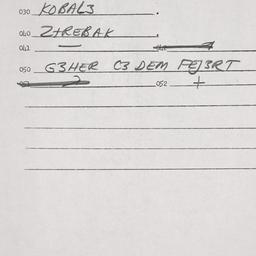 030 KOBAL3
040 Z+REBAK
041
050 G3HER C3 DEM FEJ3RT
052 +